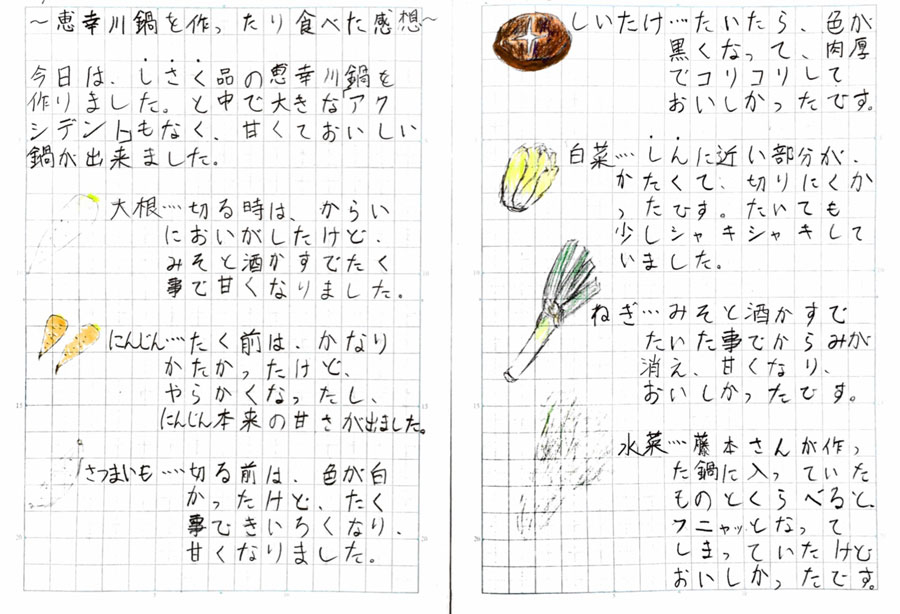 〜恵幸川鍋を作ったり食べた感想〜
今日は、しさく品の恵幸川鍋を
作りました。と中で大きなアク
シデントもなく、甘くておいしい
鍋が出来ました。
大根…切る時は、からい
においがしたけど、
みそと酒かすでたく
事で甘くなりました。
にんじん…たく前は、かなり
かたかったけど、
やらかくなったし、
にんじん本来の甘さが出ました。
さつまいも…切る前は、色が白
かったけど、たく
事できいろくなり、
甘くなりました。
しいたけ…たいたら、色が
黒くなって、肉厚
でコリコリして
おいしかったです。
白菜…しんに近い部分が、
かたくて、切りにくか
ったです。たいても
少しシャキシャキして
いました。
ねぎ…みそと酒かすで
たいた事でからみが
消え、甘くなり、
おいしかったです。
水菜…藤本さんが作っ
た鍋に入っていた
ものとくらべると、
フニャッとなって
しまっていたけど
おいしかったです。